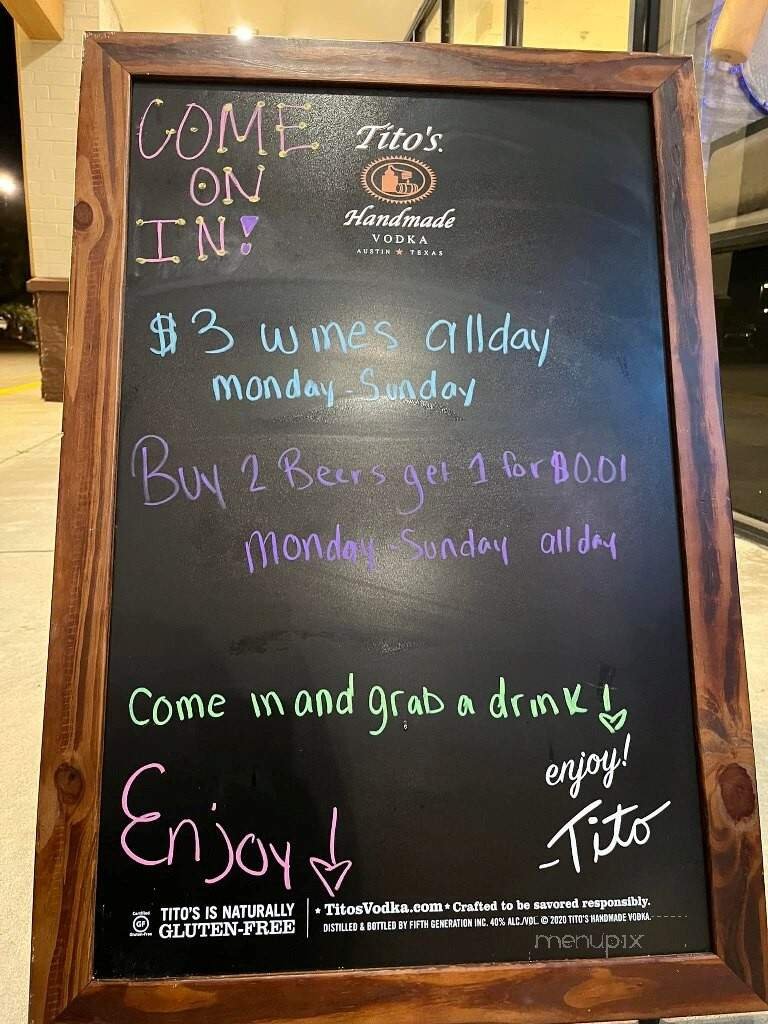 COME
ON
IN!
Tito's.
Handmade
VODKA
AUSTIN ★ TEXAS
$3 wines all day
monday - Sunday
Buy 2 Beers get 1 for $0.01
Monday - Sunday all day
Come in and grab a drink!
enjoy!
-Tito
Enjoy!
Certified
GF
Gluten-Free
TITO'S IS NATURALLY
GLUTEN-FREE
★ TitosVodka.com ★ Crafted to be savored responsibly.
DISTILLED & BOTTLED BY FIFTH GENERATION INC. 40% ALC./VOL. © 2020 TITO'S HANDMADE VODKA.
menupix